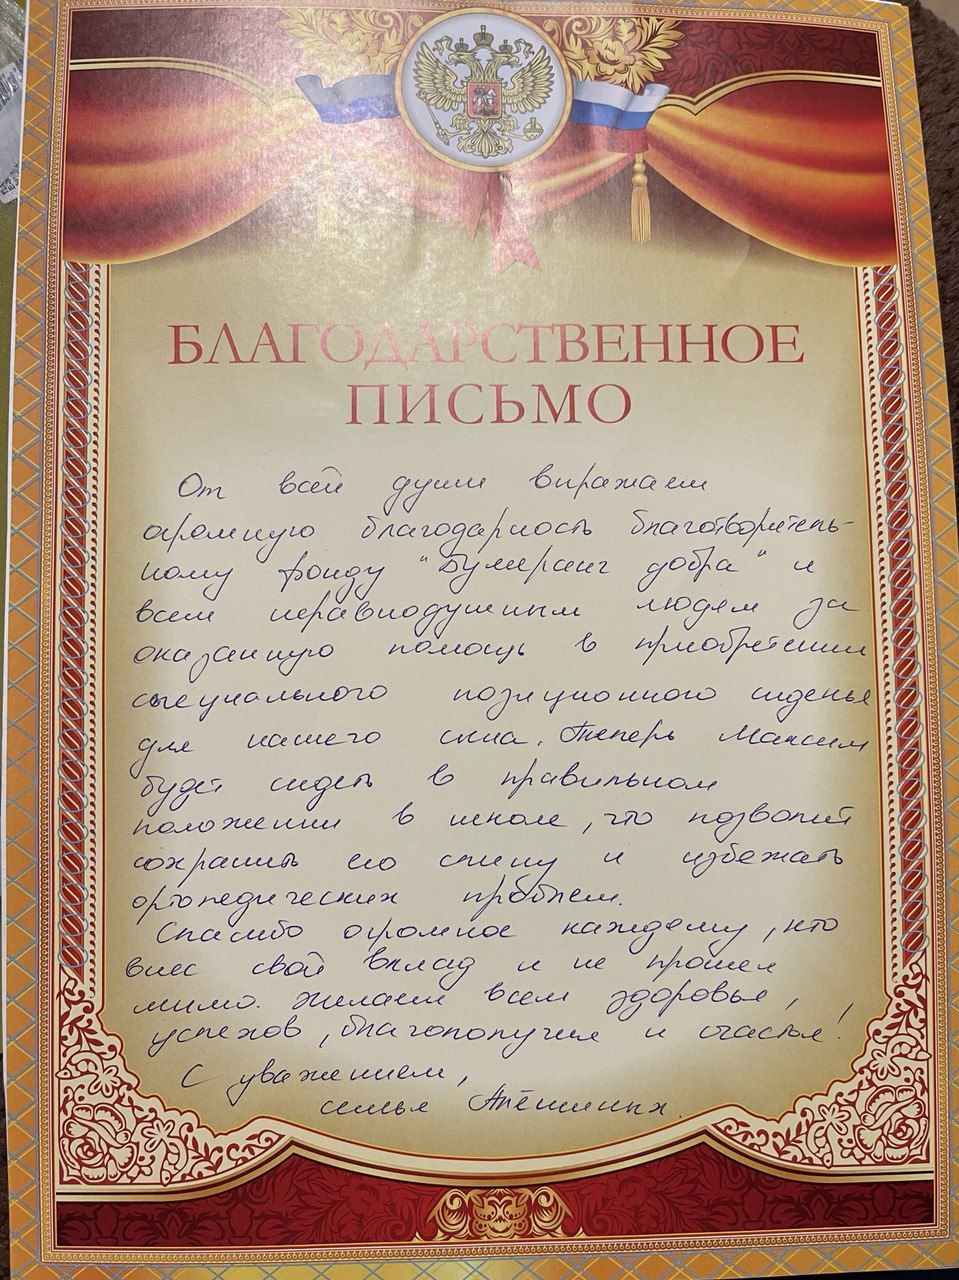 БЛАГОДАРСТВЕННОЕ
ПИСЬМО
От всей души выражаем
огромную благодарность благотворитель-
ному фонду "Бумеранг добра" и
всем неравнодушным людям за
оказанную помощь в приобретении
специального позиционного сиденья
для нашего сына. Теперь Максим
будет сидеть в правильном
положении в школе, что позволит
сохранить его спину и избежать
ортопедических проблем.
Спасибо огромное каждому, кто
внес свой вклад и не прошел
мимо. Желаем всем здоровья,
успехов, благополучия и счастья!
С уважением,
семья